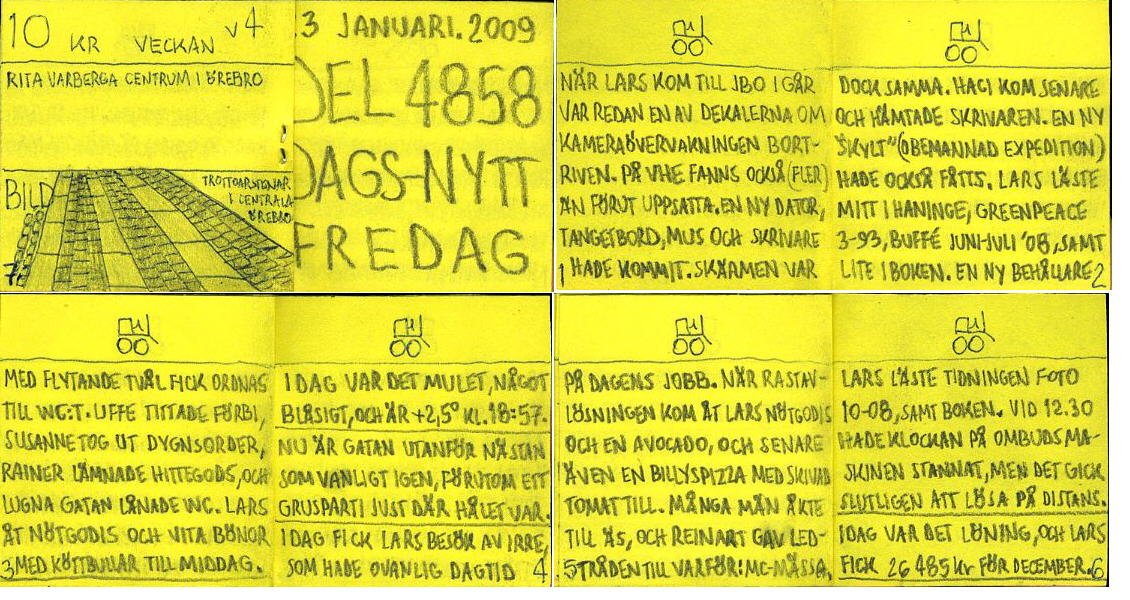 10 KR VECKAN V4
RITA VARBERGA CENTRUM I ÖREBRO
BILD
TROTTOARSTENAR
I CENTRALA
ÖREBRO
7
3 JANUARI. 2009
DEL 4858
DAGS-NYTT
FREDAG
NÄR LARS KOM TILL JBO I GÅR
VAR REDAN EN AV DEKALERNA OM
KAMERAÖVERVAKNINGEN BORT-
RIVEN. PÅ VHE FANNS OCKSÅ (FLER)
ÄN FÖRUT UPPSATTA. EN NY DATOR,
TANGETBORD, MUS OCH SKRIVARE
1 HADE KOMMIT. SKÄRMEN VAR
DOCK SAMMA. HACI KOM SENARE
OCH HÄMTADE SKRIVAREN. EN NY
"SKYLT" (OBEMANNAD EXPEDITION)
HADE OCKSÅ FÅTTS. LARS LÄSTE
MITT I HANINGE, GREENPEACE
3-93, BUFFÉ JUNI-JULI '08, SAMT
LITE I BOKEN. EN NY BEHÅLLARE 2
MED FLYTANDE TVÅL FICK ORDNAS
TILL WC:T. UFFE TITTADE FÖRBI,
SUSANNE TOG UT DYGNSORDER,
RAINER LÄMNADE HITTEGODS, OCH
LUGNA GATAN LÅNADE WC. LARS
ÅT NÖTGODIS OCH VITA BÖNOR
3 MED KÖTTBULLAR TILL MIDDAG.
I DAG VAR DET MULET, NÅGOT
BLÅSIGT, OCH ÄR +2,5° KL. 18:57.
NU ÄR GATAN UTANFÖR NÄSTAN
SOM VANLIGT IGEN, FÖRUTOM ETT
GRUSPARTI JUST DÄR HÅLET VAR.
I DAG FICK LARS BESÖK AV IRRE,
SOM HADE OVANLIG DAGTID 4
PÅ DAGENS JOBB. NÄR RASTAV-
LÖSNINGEN KOM ÅT LARS NÖTGODIS
OCH EN AVOCADO, OCH SENARE
ÄVEN EN BILLYSPIZZA MED SKIVAD
TOMAT TILL. MÅNGA MÄN ÅKTE
TILL ÄS, OCH REINART GAV LED-
5 TRÅDEN TILL VARFÖR: MC-MÄSSA.
LARS LÄSTE TIDNINGEN FOTO
10-08, SAMT BOKEN. VID 12.30
HADE KLOCKAN PÅ OMBUDSMA-
SKINEN STANNAT, MEN DET GICK
SLUTLIGEN ATT LÖSA PÅ DISTANS.
I DAG VAR DET LÖNING, OCH LARS
FICK 26 485 kr FÖR DECEMBER. 6